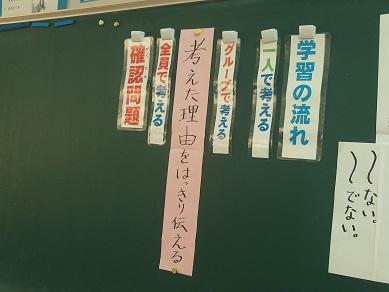 学習の流れ
一人で考える
グループで考える
考えた理由をはっきり伝える
全員で考える
確認問題
〜ない。
〜でない。